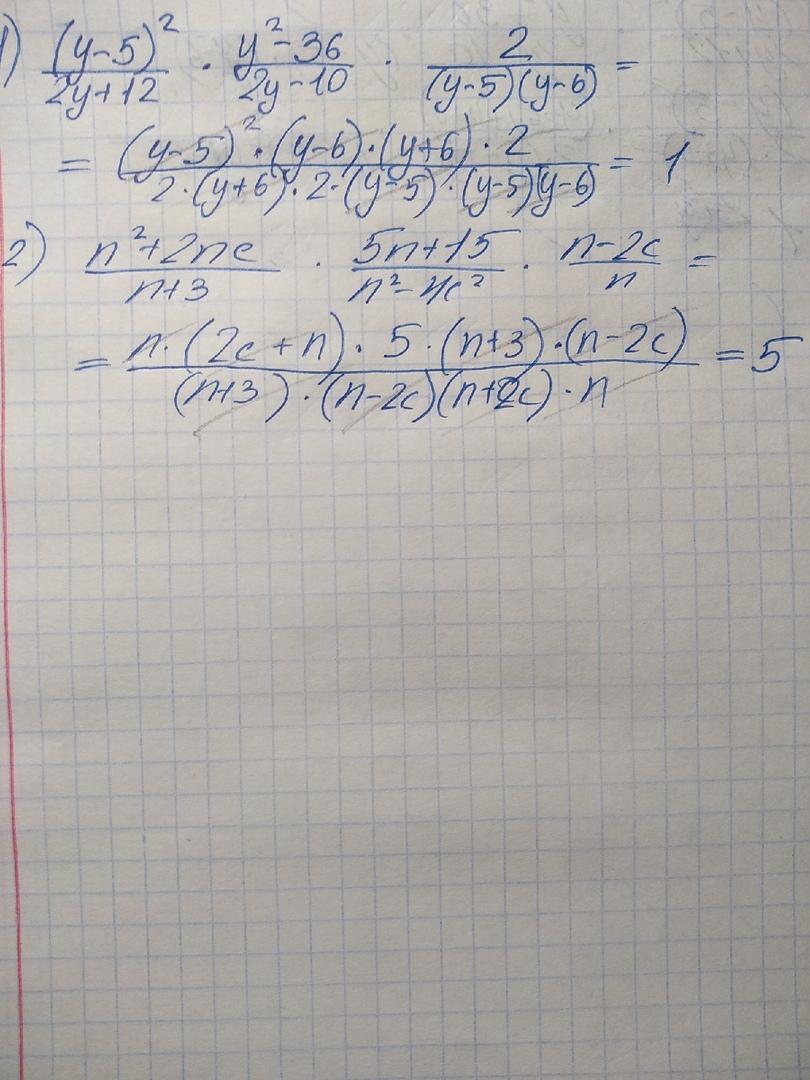 1) (y-5)²/(2y+12) · (y²-36)/(2y-10) · 2/((y-5)(y-6)) =
= ((y-5)²·(y-6)·(y+6)·2)/(2·(y+6)·2·(y-5)·(y-5)(y-6)) = 1
2) (n²+2nc)/(n+3) · (5n+15)/(n²-4c²) · (n-2c)/n =
= (n·(2c+n)·5·(n+3)·(n-2c))/((n+3)·(n-2c)(n+2c)·n) = 5